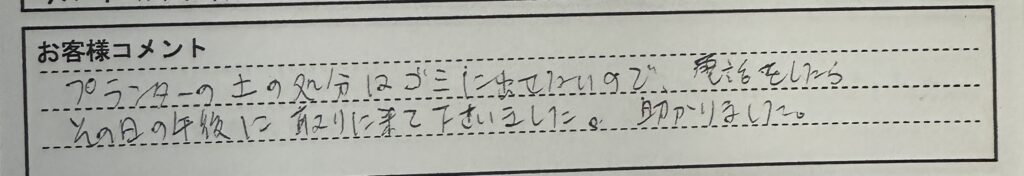 お客様コメント
プランターの土の処分はゴミに出せないので、電話をしたら
その日の午後に取りに来て下さいました。助かりました。